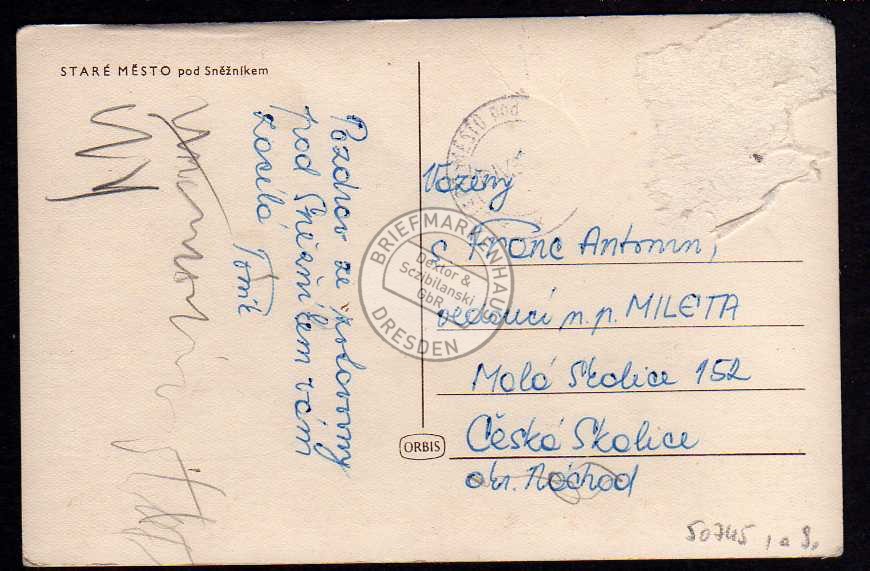 STARÉ MĚSTO pod Sněžníkem
Pozdrav ze
pod Sněžníkem vám
zasílá Toník
MĚSTO pod
Vážený
s. Franc Antonín,
vedoucí n.p. MILETA
Malá Skalice 152
Česká Skalice
okr. Náchod
ORBIS
BRIEFMARKENHAUS
Dextor &
Sczibilanski
GbR
DRESDEN
50745 1a 9,